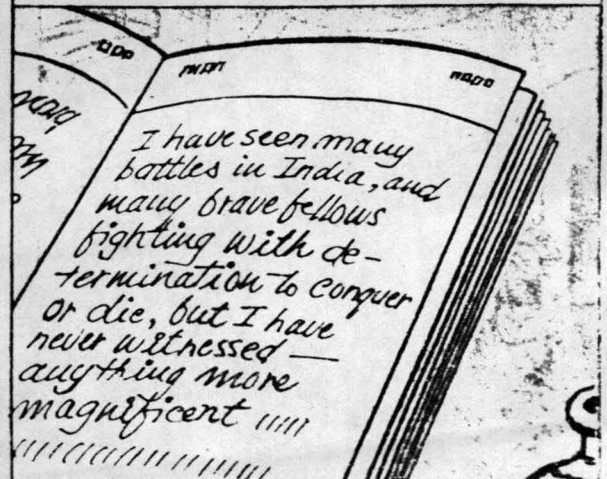 I have seen many
battles in India, and
many brave fellows
fighting with de-
termination to conquer
or die, but I have
never witnessed —
anything more
magnificent